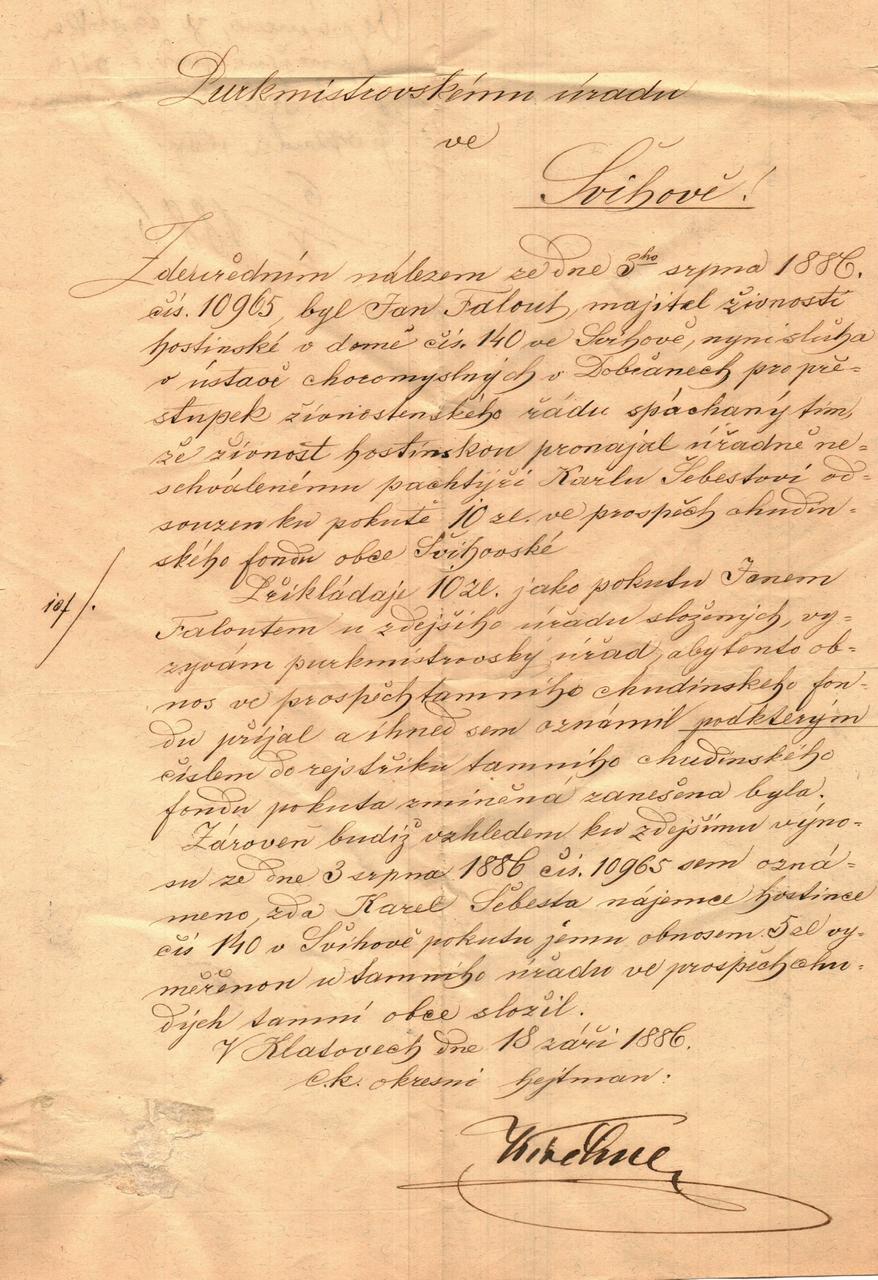 Purkmistrovskému úřadu
ve
Švihově!
Zdeúředním nálezem ze dne 3ho srpna 1886.
čís. 10965, byl Jan Falout, majitel živnosti
hostinské v domě čís. 140 ve Švihově, nyní sluha
v ústavě choromyslných v Dobřanech pro pře-
stupek živnostenského řádu spáchaný tím,
že živnost hostinskou pronajal úřadně ne-
schválenému pachtýři Karlu Šebestovi od-
souzen ku pokutě 10 zl. ve prospěch chudin-
ského fondu obce Švihovské
Přikládaje 10 zl. jako pokutu Janem
Faloutem u zdejšího úřadu složených, vy-
zývám purkmistrovský úřad, aby tento ob-
nos ve prospěch tamního chudinského fon-
du přijal a ihned sem oznámil pod kterým
číslem do rejstříku tamního chudinského
fondu pokuta zmíněná zanešena byla.
Zároveň budiž vzhledem ku zdejšímu výno-
su ze dne 3 srpna 1886 čís. 10965 sem ozná-
meno, zda Karel Šebesta nájemce hostince
čís 140 v Švihově pokutu jemu obnosem 5 zl vy-
měřenou u tamního úřadu ve prospěch chu-
dých tamní obce složil.
V Klatovech dne 18 září 1886.
C.k. okresní hejtman: